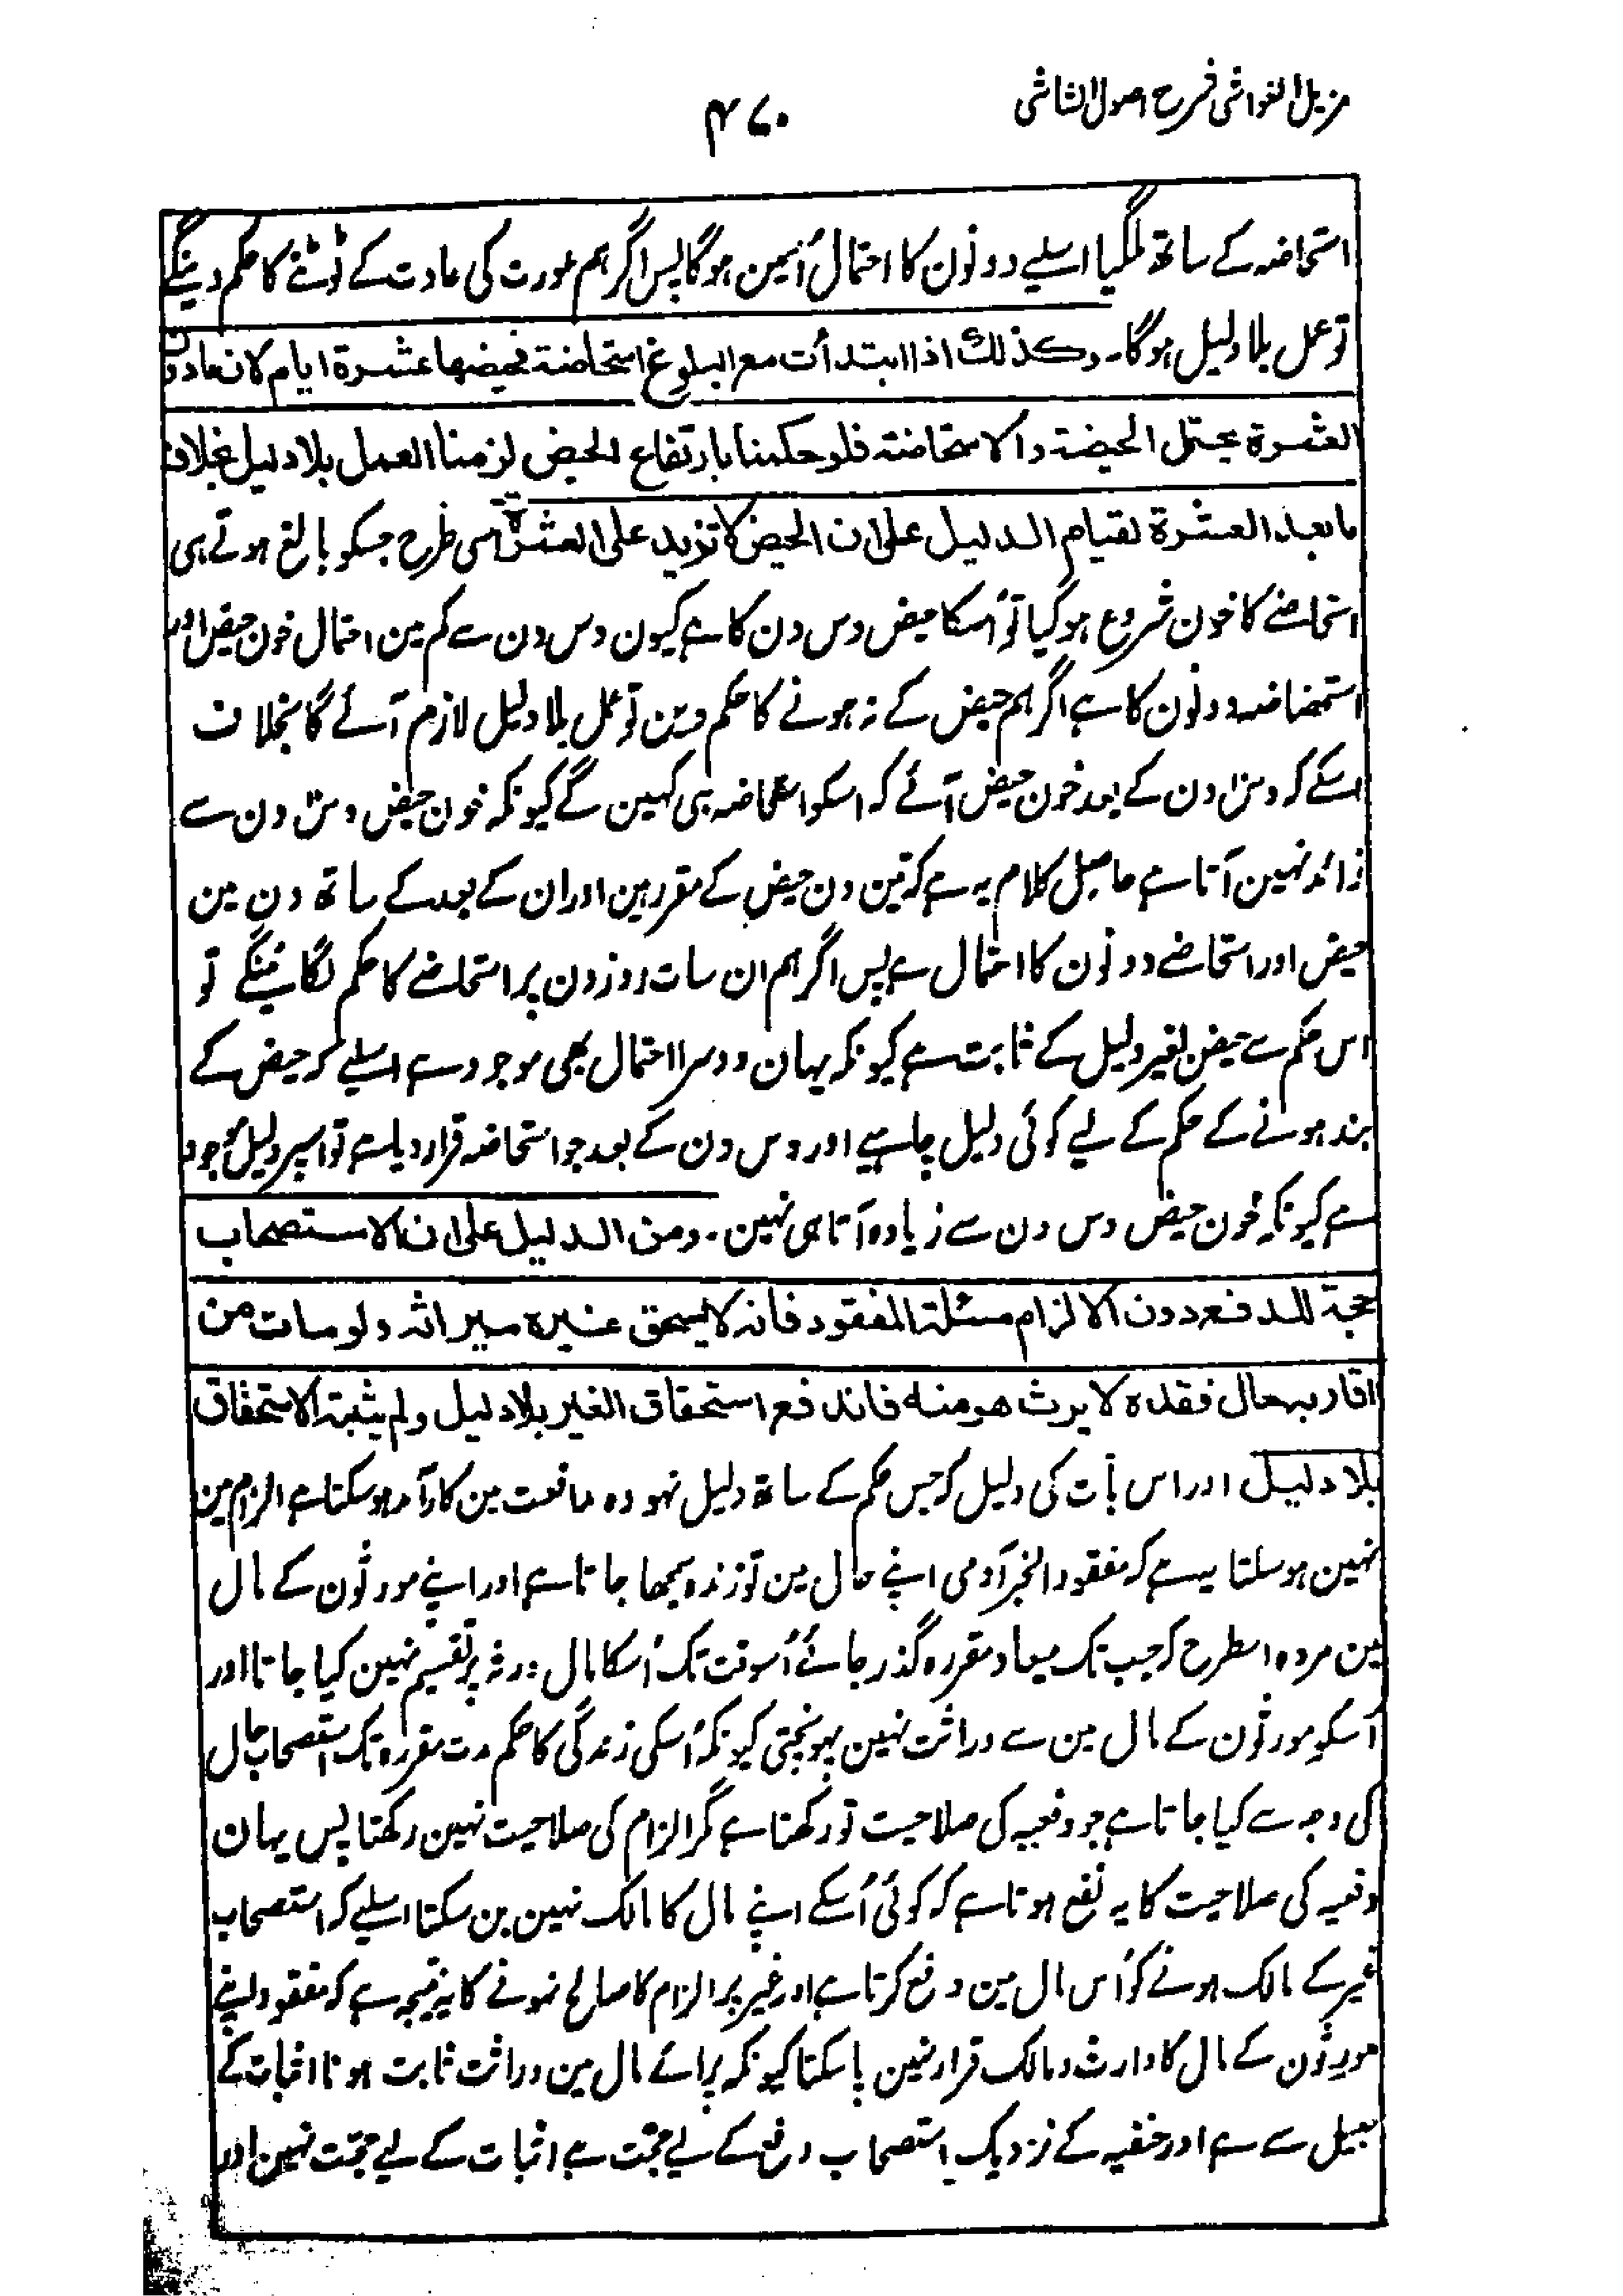 مزیل الغواشی شرح اصول الشاشی
۴۷۰
استحاضہ کے ساتھ ملگیا اسلیے دونون کا احتمال اُسمین ہوگا پس اگر ہم عورت کی عادت کے ٹوٹنے کا حکم دینگے
تو عمل بلا دلیل ہوگا۔ وکذلک اذا ابتدأت مع البلوغ استحاضة فحیضہا عشرة ایام لان مادون
العشرة یحتمل الحیضة والاستحاضة فلو حکمنا بارتفاع الحیض لزمنا العمل بلا دلیل بخلاف
ما بعد العشرة لقیام الدلیل علی ان الحیض لا تزید علی العشرة اسی طرح جسکو بالغ ہوتے ہی
استحاضے کا خون شروع ہوگیا تو اُسکا حیض دس دن کا ہے کیون دس دن سے کم مین احتمال خون حیض اور
استحضاضہ دونون کا ہے اگر ہم حیض کے نہ ہونے کا حکم دین تو عمل بلا دلیل لازم آئے گا بخلاف
اسکے کہ دس دن کے بعد خون حیض آئے کہ اسکو استحاضہ ہی کہین گے کیونکہ خون حیض دس دن سے
زائد نہین آتا ہے حاصل کلام یہ ہے کہ تین دن حیض کے مقرر ہین اور ان کے بعد کے ساتھ دن مین
حیض اور استحاضے دونون کا احتمال ہے پس اگر ہم ان سات روزون پر استحاضے کا حکم لگائینگے تو
اس حکم سے حیض بغیر دلیل کے ثابت ہے کیونکہ یہان دوسرا احتمال بھی موجود ہے اسلیے کہ حیض کے
بند ہونے کے حکم کے لیے کوئی دلیل چاہیے اور دس دن کے بعد جو استحاضہ قرار دیا ہے تو اسپر دلیل موجود
ہے کیونکہ خون حیض دس دن سے زیادہ آتا ہی نہین۔ ومن الدلیل علی ان الاستصحاب
حجة للدفع دون الالزام مسئلة المفقود فانہ لا یستحق غیرہ میراثہ ولو مات من
اقاربہ حال فقدہ لا یرث ھو منہ فاندفع استحقاق الغیر بلا دلیل ولم یثبت الاستحقاق
بلا دلیل اور اس بات کی دلیل کہ جس حکم کے ساتھ دلیل نہو وہ مدافعت مین کارآمد ہوسکتا ہے الزام مین
نہین ہوسکتا یہ ہے کہ مفقود الخبر آدمی اپنے مال مین تو زندہ سمجھا جاتا ہے اور اپنے مورثون کے مال
مین مردہ اسطرح کہ جب تک میعاد مقررہ گذر جائے اُسوقت تک اُسکا مال ورثہ پر تقسیم نہین کیا جاتا اور
اُسکو مورثون کے مال مین سے وراثت نہین پہونچتی کیونکہ اُسکی زندگی کا حکم مدت مقررہ تک استصحاب حال
کی وجہ سے کیا جاتا ہے جو دفعیہ کی صلاحیت تو رکھتا ہے مگر الزام کی صلاحیت نہین رکھتا پس یہان
دفعیہ کی صلاحیت کا یہ نفع ہوتا ہے کہ کوئی اُسکے اپنے مال کا مالک نہین بن سکتا اسلیے کہ استصحاب
غیر کے مالک ہونے کو اُس مال مین دفع کرتا ہے اور غیر پر الزام کا صالح نہونے کا یہ نتیجہ ہے کہ مفقود اپنے
مورثون کے مال کا وارث و مالک قرار نہین پا سکتا کیونکہ پرائے مال مین وراثت ثابت ہونا اثبات کے
قبیل سے ہے اور حنفیہ کے نزدیک استصحاب دفع کے لیے حجت ہے اثبات کے لیے حجت نہین اور